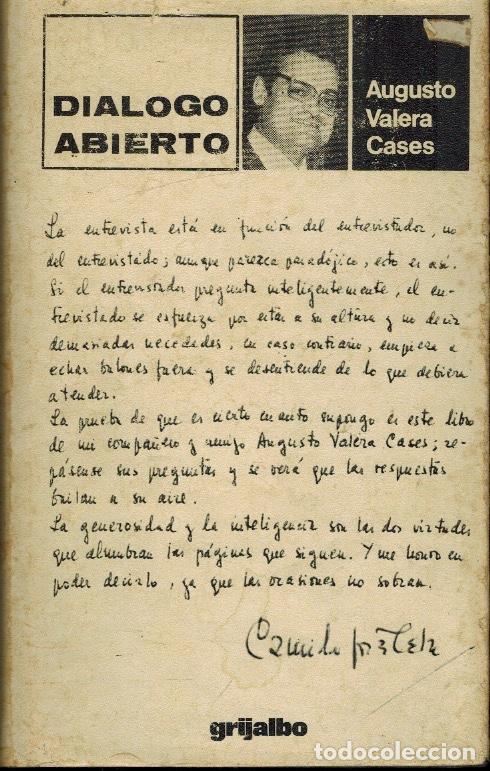 DIALOGO
ABIERTO
Augusto
Valera
Cases
La entrevista está en función del entrevistador, no
del entrevistado; aunque parezca paradójico, esto es así.
Si el entrevistador pregunta inteligentemente, el en-
trevistado se esfuerza por estar a su altura y no decir
demasiadas necedades, en caso contrario, empieza a
echar balones fuera y se desentiende de lo que debiera
atender.
La prueba de que es cierto cuanto supongo es este libro
de mi compañero y amigo Augusto Valera Cases; re-
pásense sus preguntas y se verá que las respuestas
bailan a su aire.
La generosidad y la inteligencia son las dos virtudes
que alumbran las páginas que siguen. Y me honro en
poder decirlo, ya que las ocasiones no sobran.
Camilo José Cela
grijalbo
todocoleccion